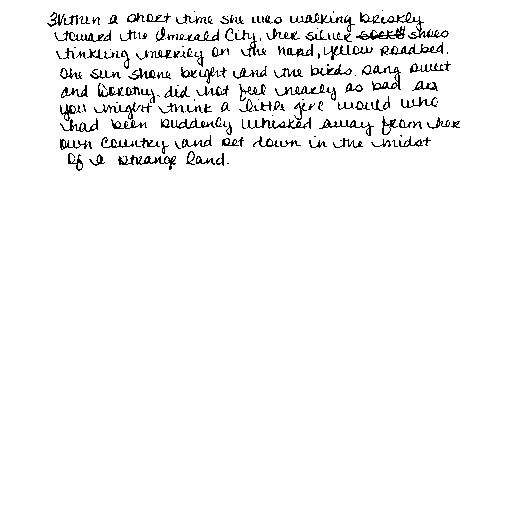 Within a short time she was walking briskly
toward the Emerald City, her silver shoes
tinkling merrily on the hard, yellow roadbed.
The sun shone bright and the birds. sang sweet
and Dorothy. did not feel nearly as bad as
you might think a little girl would who
had been suddenly whisked away from her
own country and set down in the midst
of a strange land.